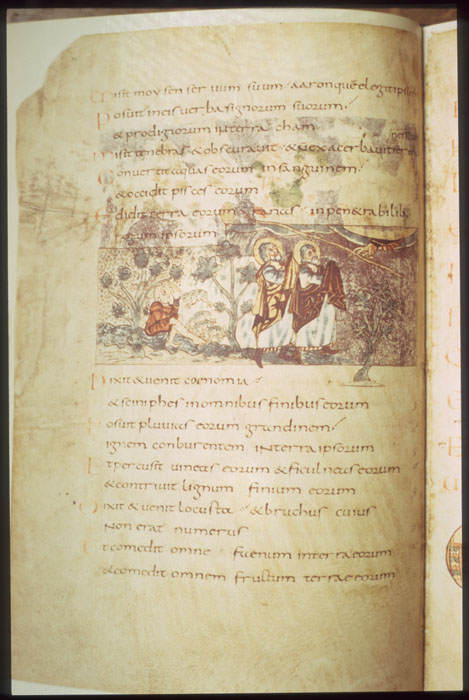 Misit moysen seruum suum · aaronquē elegit
Posuit ineis uerba signorum suorum
& prodigiorum interra cham
Misit tenebras & obscurauit · & exacerbauit
Conuertit aquas eorum insanguinem
& occidit pisces eorum
Edidit terra eorum ranas · inpen&rabilib;
regum ipsorum
Dixit & uenit coenomia
& sciniphes inomnibus finibus eorum
Posuit pluuias eorum grandinem
ignem conburentem interra ipsorum
Et percusit uineas eorum & ficulneas eorum
& contriuit lignum finium eorum
Dixit & uenit locusta · & bruchus cuius
non erat numerus
Et comedit omne foenum interra eorum
& comedit omnem fructum terrae eorum